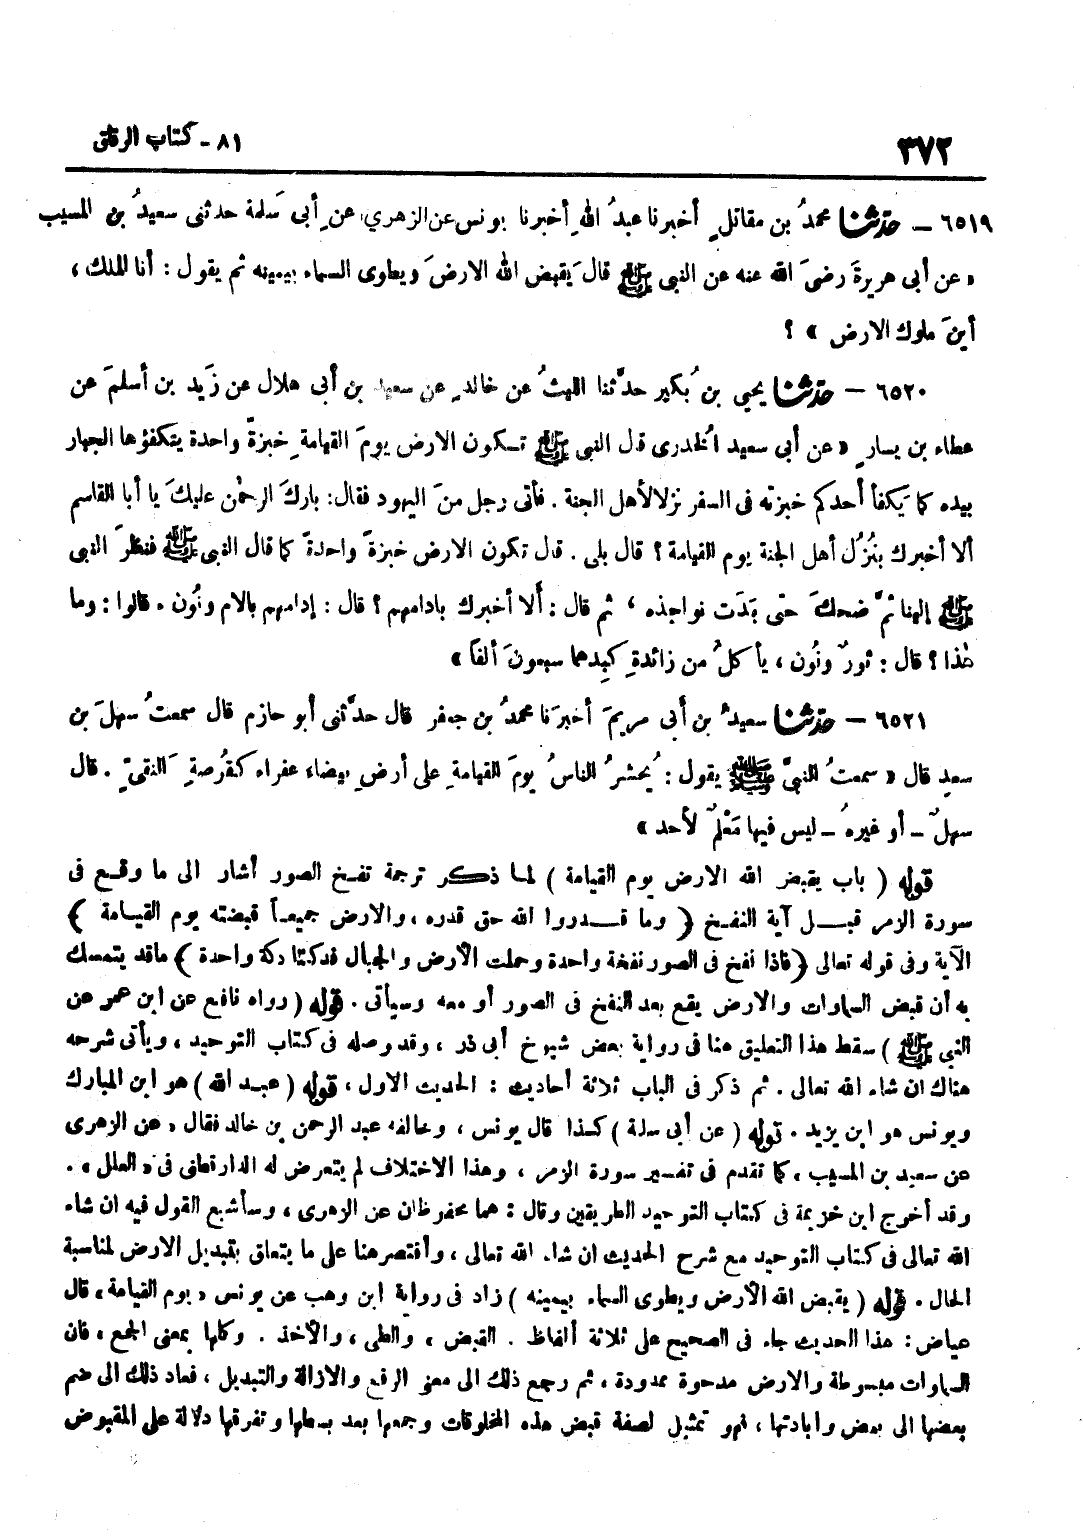 ٣٧٢
٨١ - كتاب الرقاق
٦٥١٩ - حدثنا محمدُ بن مقاتلٍ أخبرنا عبدُ اللهِ أخبرنا يونس عن الزهري عن أبى سَلمة حدثنى سعيدُ بن المسيب
« عن أبى هريرةَ رضىَ الله عنه عن النبى ﷺ قالَ يَقبض الله الارضَ ويطوى السماء بيمينه ثم يقول : أنا الملك ،
أينَ ملوك الارض » ؟
٦٥٢٠ - حدثنا يحيى بن ُبكير حدَّثنا الليثُ عن خالدٍ عن سعيد بن أبى هلال عن زَيد بن أسلمَ عن
عطاء بن يسارٍ « عن أبى سعيد الُخدرى قال النبى ﷺ تـكون الارض يومَ القيامةِ خبزةً واحدة يتكفؤها الجبار
بيده كما يَكفأ أحدكم خبزته فى السفر نزلا لأهل الجنة . فأتى رجل منَ اليهود فقال: باركَ الرحمٰن عليكَ يا أبا القاسم
ألا أخبرك بنُزُل أهل الجنة يوم القيامة ؟ قال بلى . قال تكون الارض خبزةً واحدةً كما قال النبى ﷺ فنظرَ النبى
ﷺ إلينا ثمَّ ضحكَ حتى بَدَت نواجذه ، ثم قال : ألا أخبرك بادامهم ؟ قال : إدامهم بالام ونُون . قالوا : وما
هٰذا ؟ قال : ثورٌ ونُون ، يأكلُ من زائدةِ كبِدهما سبعونَ ألفاً »
٦٥٢١ - حدثنا سعيدُ بن أبى مريمَ أخبرَنا محمدُ بن جعفر قال حدَّثنى أبو حازم قال سمعتُ سهلَ بن
سعدٍ قال « سمعتُ النبىَّ ﷺ يقول : ُيحشرُ الناسُ يومَ القيامةِ على أرضٍ بيضاء عفراء كقُرصةِ النقىِّ . قال
سهلٌ - أو غيرهُ - ليس فيها مَعْلمٌ لأحد »
قوله ( باب يقبض الله الارض يوم القيامة ) لما ذكر ترجمة نفخ الصور أشار الى ما وقع فى
سورة الزمر قبل آية النفخ ( وما قدروا الله حق قدره ، والارض جميعاً قبضته يوم القيامة )
الآية وفى قوله تعالى (فاذا نفخ فى الصور نفخة واحدة وحملت الأرض والجبال فدكتا دكة واحدة ) ماقد يتمسك
به أن قبض السماوات والارض يقع بعد النفخ فى الصور أو معه وسيأتى . قوله ( رواه نافع عن ابن عمر عن
النبى ﷺ ) سقط هذا التعليق هنا فى رواية بعض شيوخ أبى ذر ، وقد وصله فى كتاب التوحيد ، ويأتى شرحه
هناك ان شاء الله تعالى . ثم ذكر فى الباب ثلاثة أحاديث : الحديث الاول ، قوله ( عبد الله ) هو ابن المبارك
ويونس هو ابن يزيد . قوله ( عن أبى سلمة ) كذا قال يونس ، وخالفه عبد الرحمن بن خالد فقال « عن الزهرى
عن سعيد بن المسيب ، كما تقدم فى تفسير سورة الزمر ، وهذا الاختلاف لم يتعرض له الدارقطنى فى « العلل » .
وقد أخرج ابن خزيمة فى كتاب التوحيد الطريقين وقال : هما محفوظان عن الزهرى ، وسأشبع القول فيه ان شاء
الله تعالى فى كتاب التوحيد مع شرح الحديث ان شاء الله تعالى ، وأقتصر هنا على ما يتعلق بتبديل الارض لمناسبة
الحال . قوله ( يقبض الله الأرض ويطوى السماء بيمينه ) زاد فى رواية ابن وهب عن يونس « يوم القيامة ، قال
عياض : هذا الحديث جاء فى الصحيح على ثلاثة ألفاظ . القبض ، والطى ، والأخذ . وكلها بمعنى الجمع ، فان
السماوات مبسوطة والارض مدحوة ممدودة ، ثم رجع ذلك الى معنى الرفع والازالة والتبديل ، فعاد ذلك الى ضم
بعضها الى بعض وابادتها ، فهو تمثيل لصفة قبض هذه المخلوقات وجمعها بعد بسطها وتفرقها دلالة على المقبوض